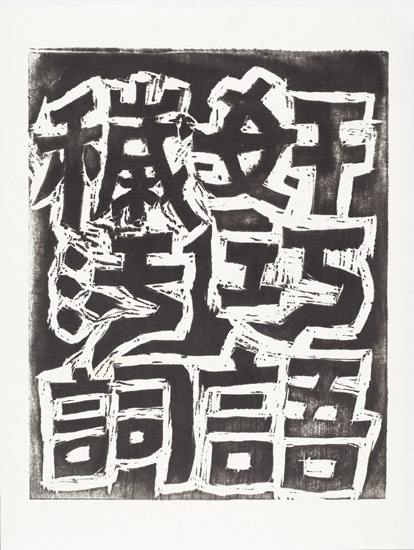 奸巧語
穢污詞